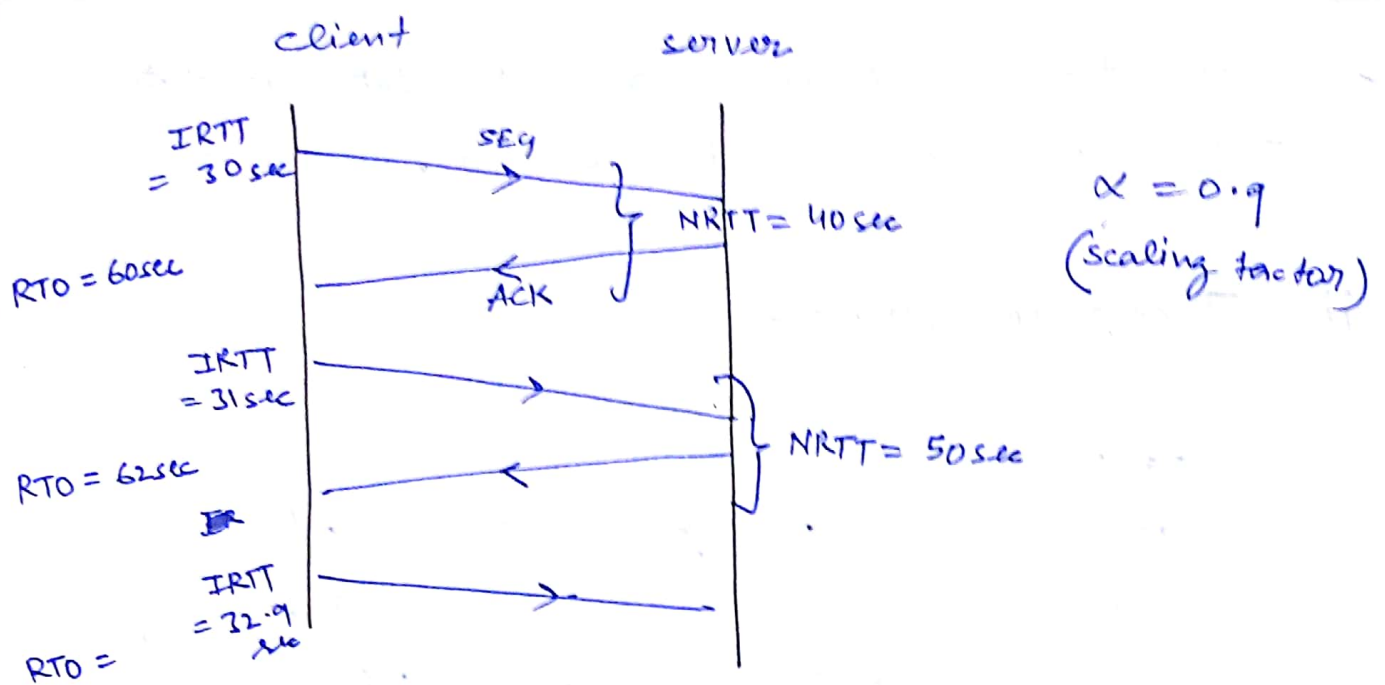 client server
IRTT
= 30 sec
SEQ
NRTT = 40 sec
α = 0.9
(scaling factor)
RTO = 60sec
ACK
IRTT
= 31 sec
NRTT = 50 sec
RTO = 62sec
IRTT
= 32.9
sec
RTO =